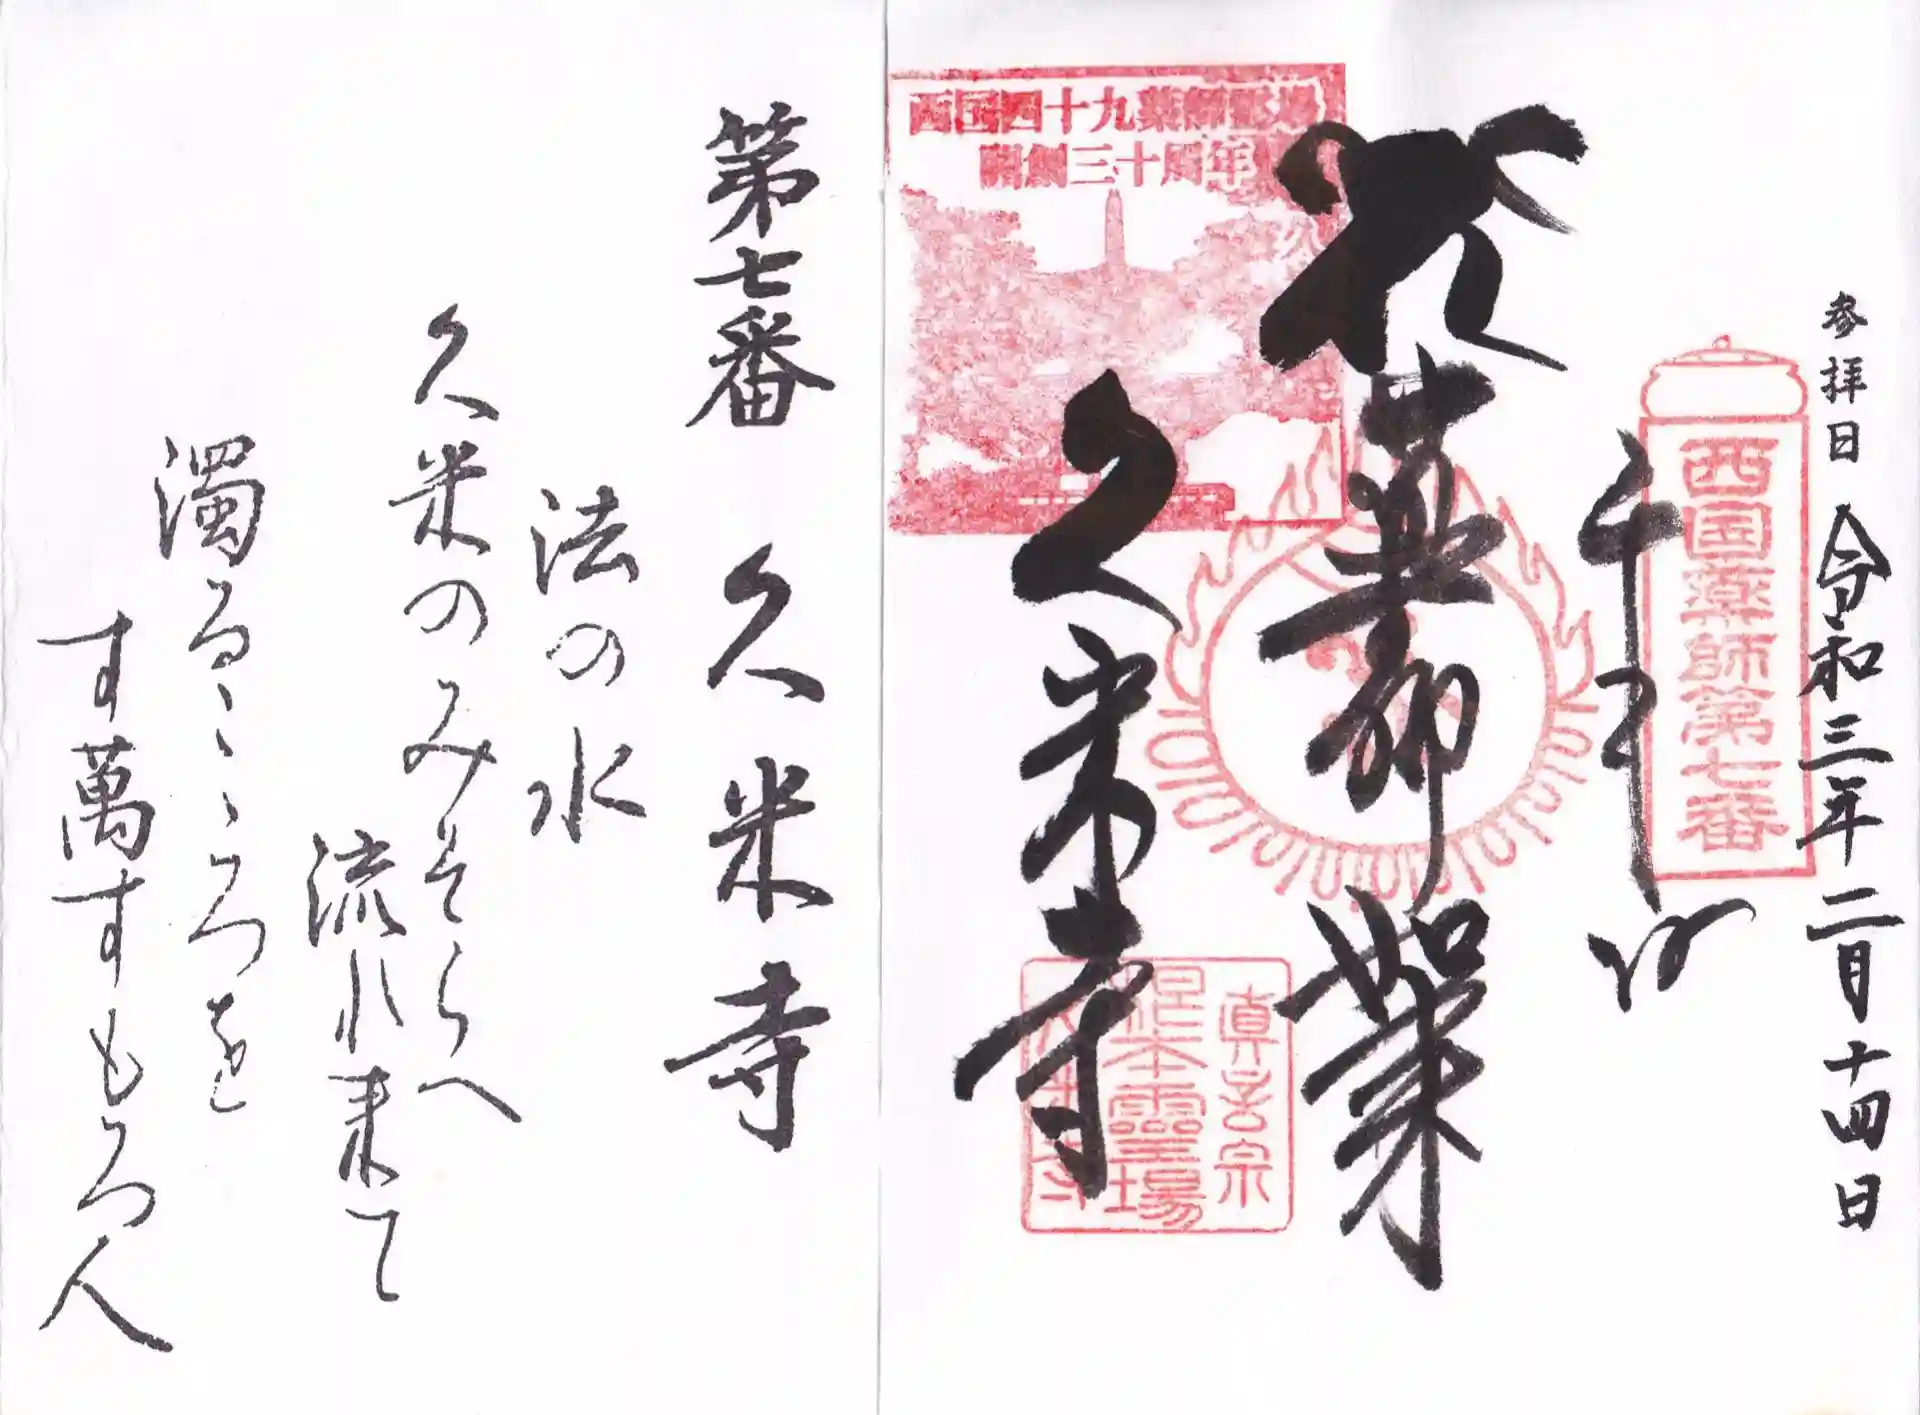 参拝日 令和三年二月十四日
西国薬師第七番
薬師如来
西国四十九薬師霊場
開創三十周年
久米寺
眞言宗
根本靈場
久米寺
第七番 久米寺
法の水
久米のみそらへ
流れ来て
濁るこゝろを
す萬すもろ人